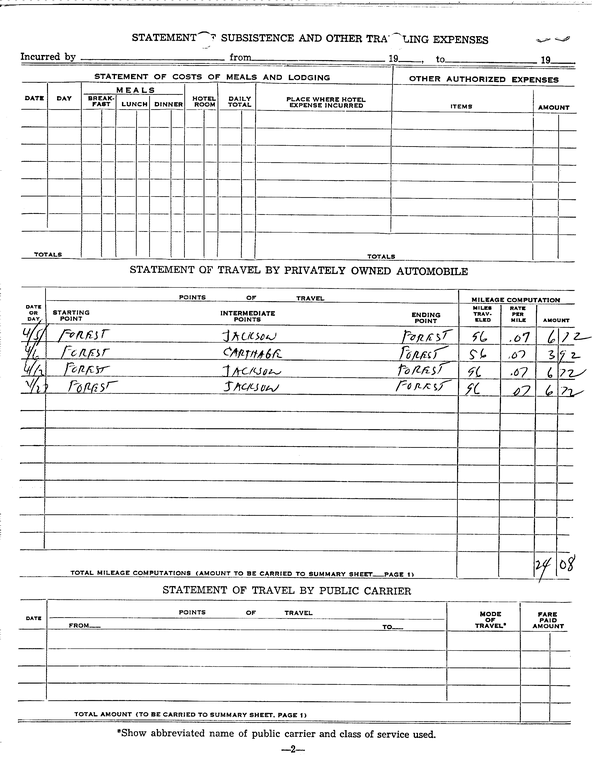 STATEMENT SUBSISTENCE AND OTHER LING EXPENSES
Incurred by from 19 , to 19
STATEMENT OF COSTS OF MEALS AND LODGING OTHER AUTHORIZED EXPENSES
DATE DAY MEALS HOTEL ROOM DAILY TOTAL PLACE WHERE HOTEL EXPENSE INCURRED ITEMS AMOUNT
BREAK-FAST LUNCH DINNER
TOTALS TOTALS
STATEMENT OF TRAVEL BY PRIVATELY OWNED AUTOMOBILE
DATE OR DAY POINTS OF TRAVEL MILEAGE COMPUTATION
STARTING POINT INTERMEDIATE POINTS ENDING POINT MILES TRAV-ELED RATE PER MILE AMOUNT
FOREST JACKSON FOREST .07 6 72
FOREST CARTHAGE FOREST 56 .07 3 92
FOREST JACKSON FOREST .07 6 72
FOREST JACKSON FOREST .07 6 72
TOTAL MILEAGE COMPUTATIONS (AMOUNT TO BE CARRIED TO SUMMARY SHEET—PAGE 1) 24 08
STATEMENT OF TRAVEL BY PUBLIC CARRIER
DATE POINTS OF TRAVEL MODE OF TRAVEL* FARE PAID AMOUNT
FROM— TO—
TOTAL AMOUNT (TO BE CARRIED TO SUMMARY SHEET, PAGE 1)
*Show abbreviated name of public carrier and class of service used.
—2—